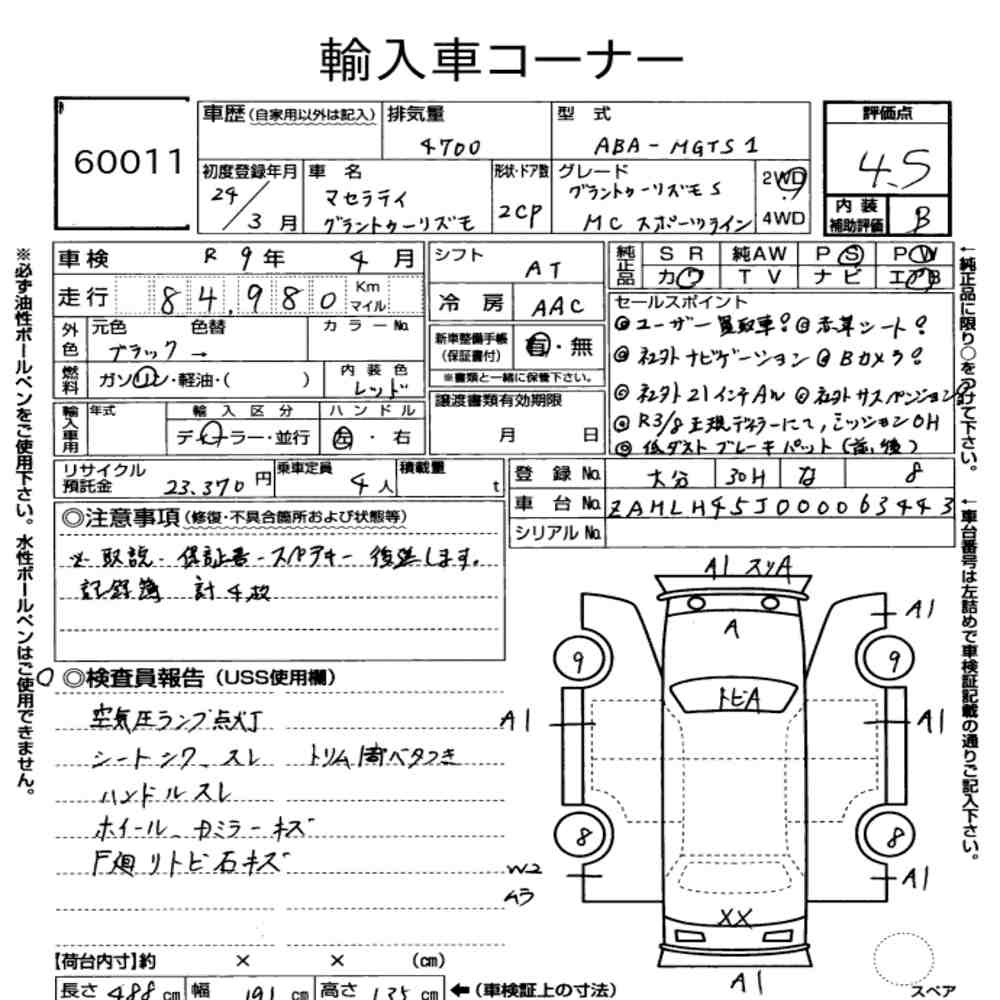 輸入車コーナー
60011
車歴(自家用以外は記入) 排気量 型式 評価点
4700 ABA-MGTS1 4.5
初度登録年月 車名 形状・ドア数 グレード 2WD
24/3月 マセラティ グラントゥーリズモ 2CP グラントゥーリズモS MCスポーツライン 4WD
内装補助評価 B
車検 R 9年 4月 シフト AT
純正品 SR 純AW PS PW
カワ TV ナビ エアB
走行 84,980 Km マイル
冷房 AAC
セールスポイント
外色 元色 色替 カラーNo.
ブラック →
新車整備手帳(保証書付) 有・無
※書類と一緒に保管下さい。
燃料 ガソリン・軽油・( ) 内装色 レッド
◎ユーザー買取車! ◎赤革シート!
◎社外ナビゲーション ◎Bカメラ!
◎社外21インチAW ◎社外サスペンション
◎R3/8 正規ディラーにて,ミッションOH
◎低ダストブレーキパット(前,後)
譲渡書類有効期限
月 日
輸入車用 年式 輸入区分 ハンドル
ディーラー・並行 左・右
リサイクル預託金 23,370円 乗車定員 4人 積載量 t
登録No. 大分 30H な 8
車台No. ZAMLH45J000063443
シリアルNo.
◎注意事項(修復・不具合箇所および状態等)
※取説・保証書・スペアキー後送します。
記録簿 計4枚
◎検査員報告(USS使用欄)
空気圧ランプ点灯
シートシワ、スレ トリム ベタつき
ハンドルスレ
ホイール、カミラーキズ
F廻リトビ石キズ
A1 スリA
A
トビA
A1
9 9
A1 A1
8 8
W2
ムラ
A1
XX
A1
スペア
【荷台内寸】約 × × (cm)
長さ 488cm 幅 191cm 高さ 135cm ←(車検証上の寸法)
※必ず油性ボールペンをご使用下さい。水性ボールペンはご使用できません。
←純正品に限り○をつけて下さい。
←車台番号は左詰めで車検証記載の通りご記入下さい。